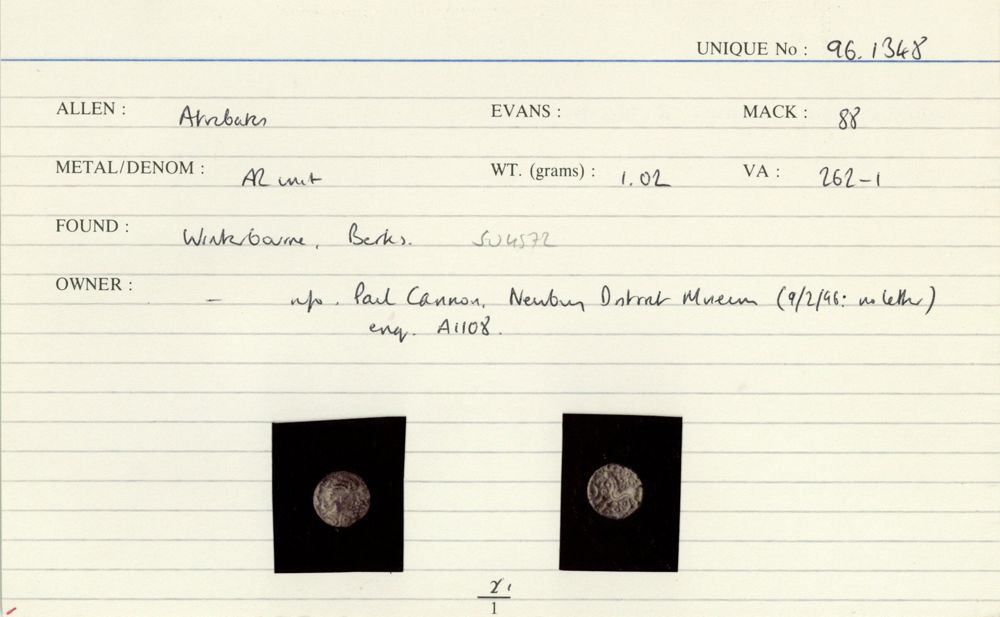 UNIQUE No : 96.1348
ALLEN : Atrebates EVANS : MACK : 88
METAL/DENOM : AR unit WT. (grams) : 1.02 VA : 262-1
FOUND : Winterbourne, Berks. SU4572
OWNER : – info. Paul Cannon, Newbury District Museum (9/2/96: no letter)
enq. A1108.
1